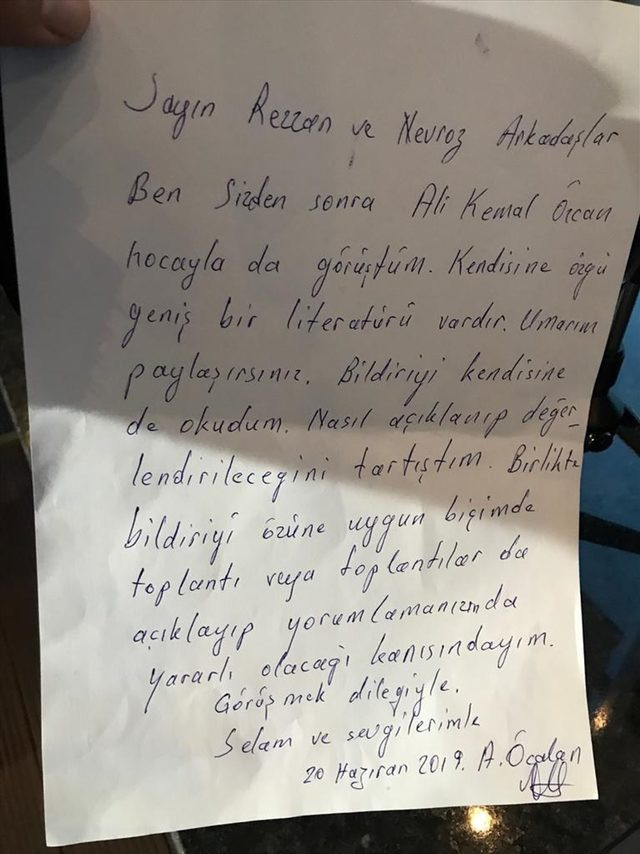 Sayın Rezzan ve Nevroz Arkadaşlar
Ben Sizden sonra Ali Kemal Özcan
hocayla da görüştüm. Kendisine özgü
geniş bir literatürü vardır. Umarım
paylaşırsınız. Bildiriyi kendisine
de okudum. Nasıl açıklanıp değer-
lendirileceğini tartıştım. Birlikte
bildiriyi özüne uygun biçimde
toplantı veya toplantılar da
açıklayıp yorumlamanızında
yararlı olacağı kanısındayım.
Görüşmek dileğiyle.
Selam ve sevgilerimle
20 Haziran 2019. A. Öcalan